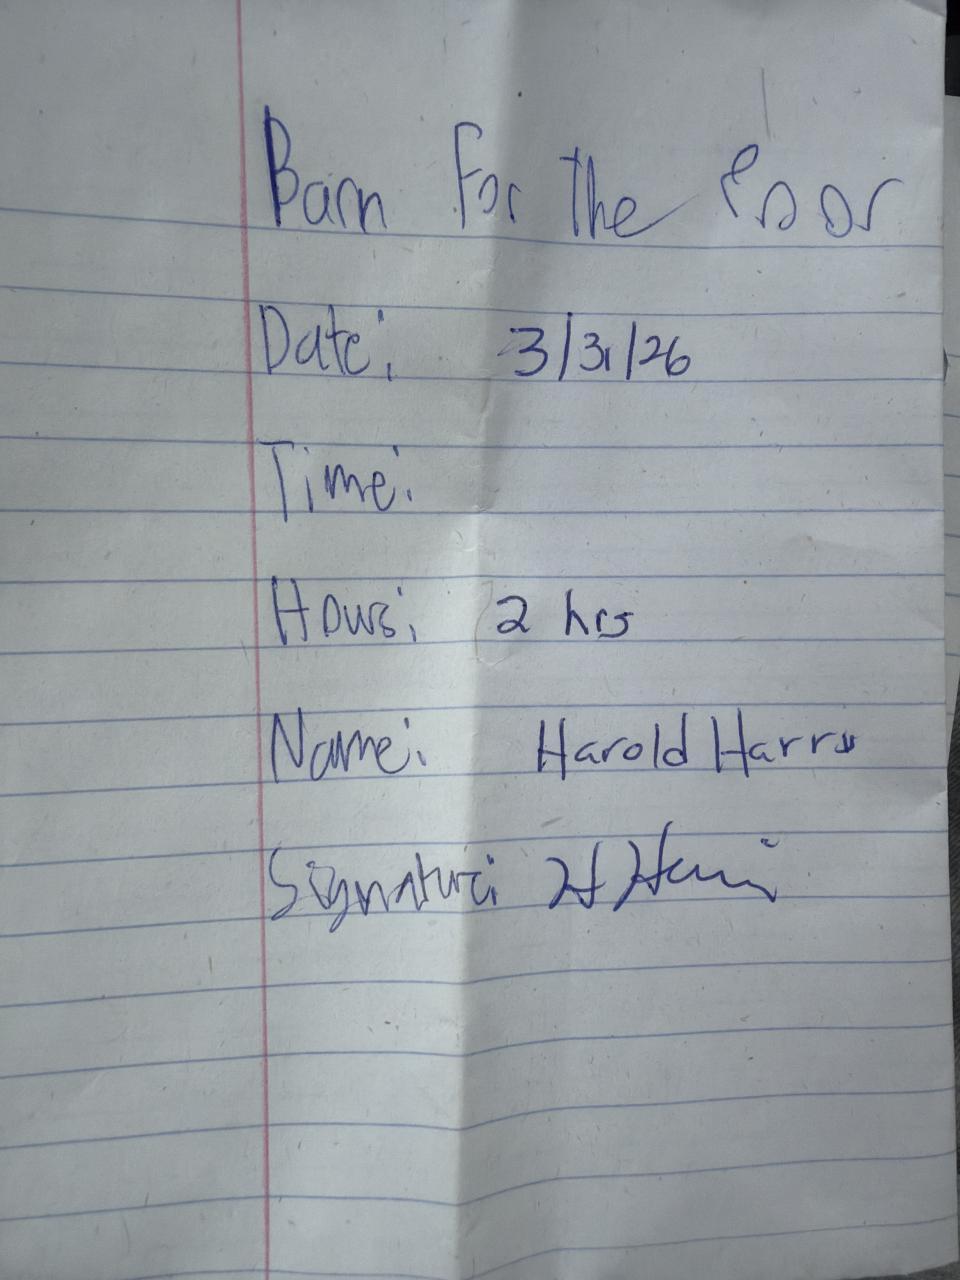 Barn For the Poor
Date: 3/31/26
Time:
Hours: 2 hrs
Name: Harold Harris
Signature: H Harris